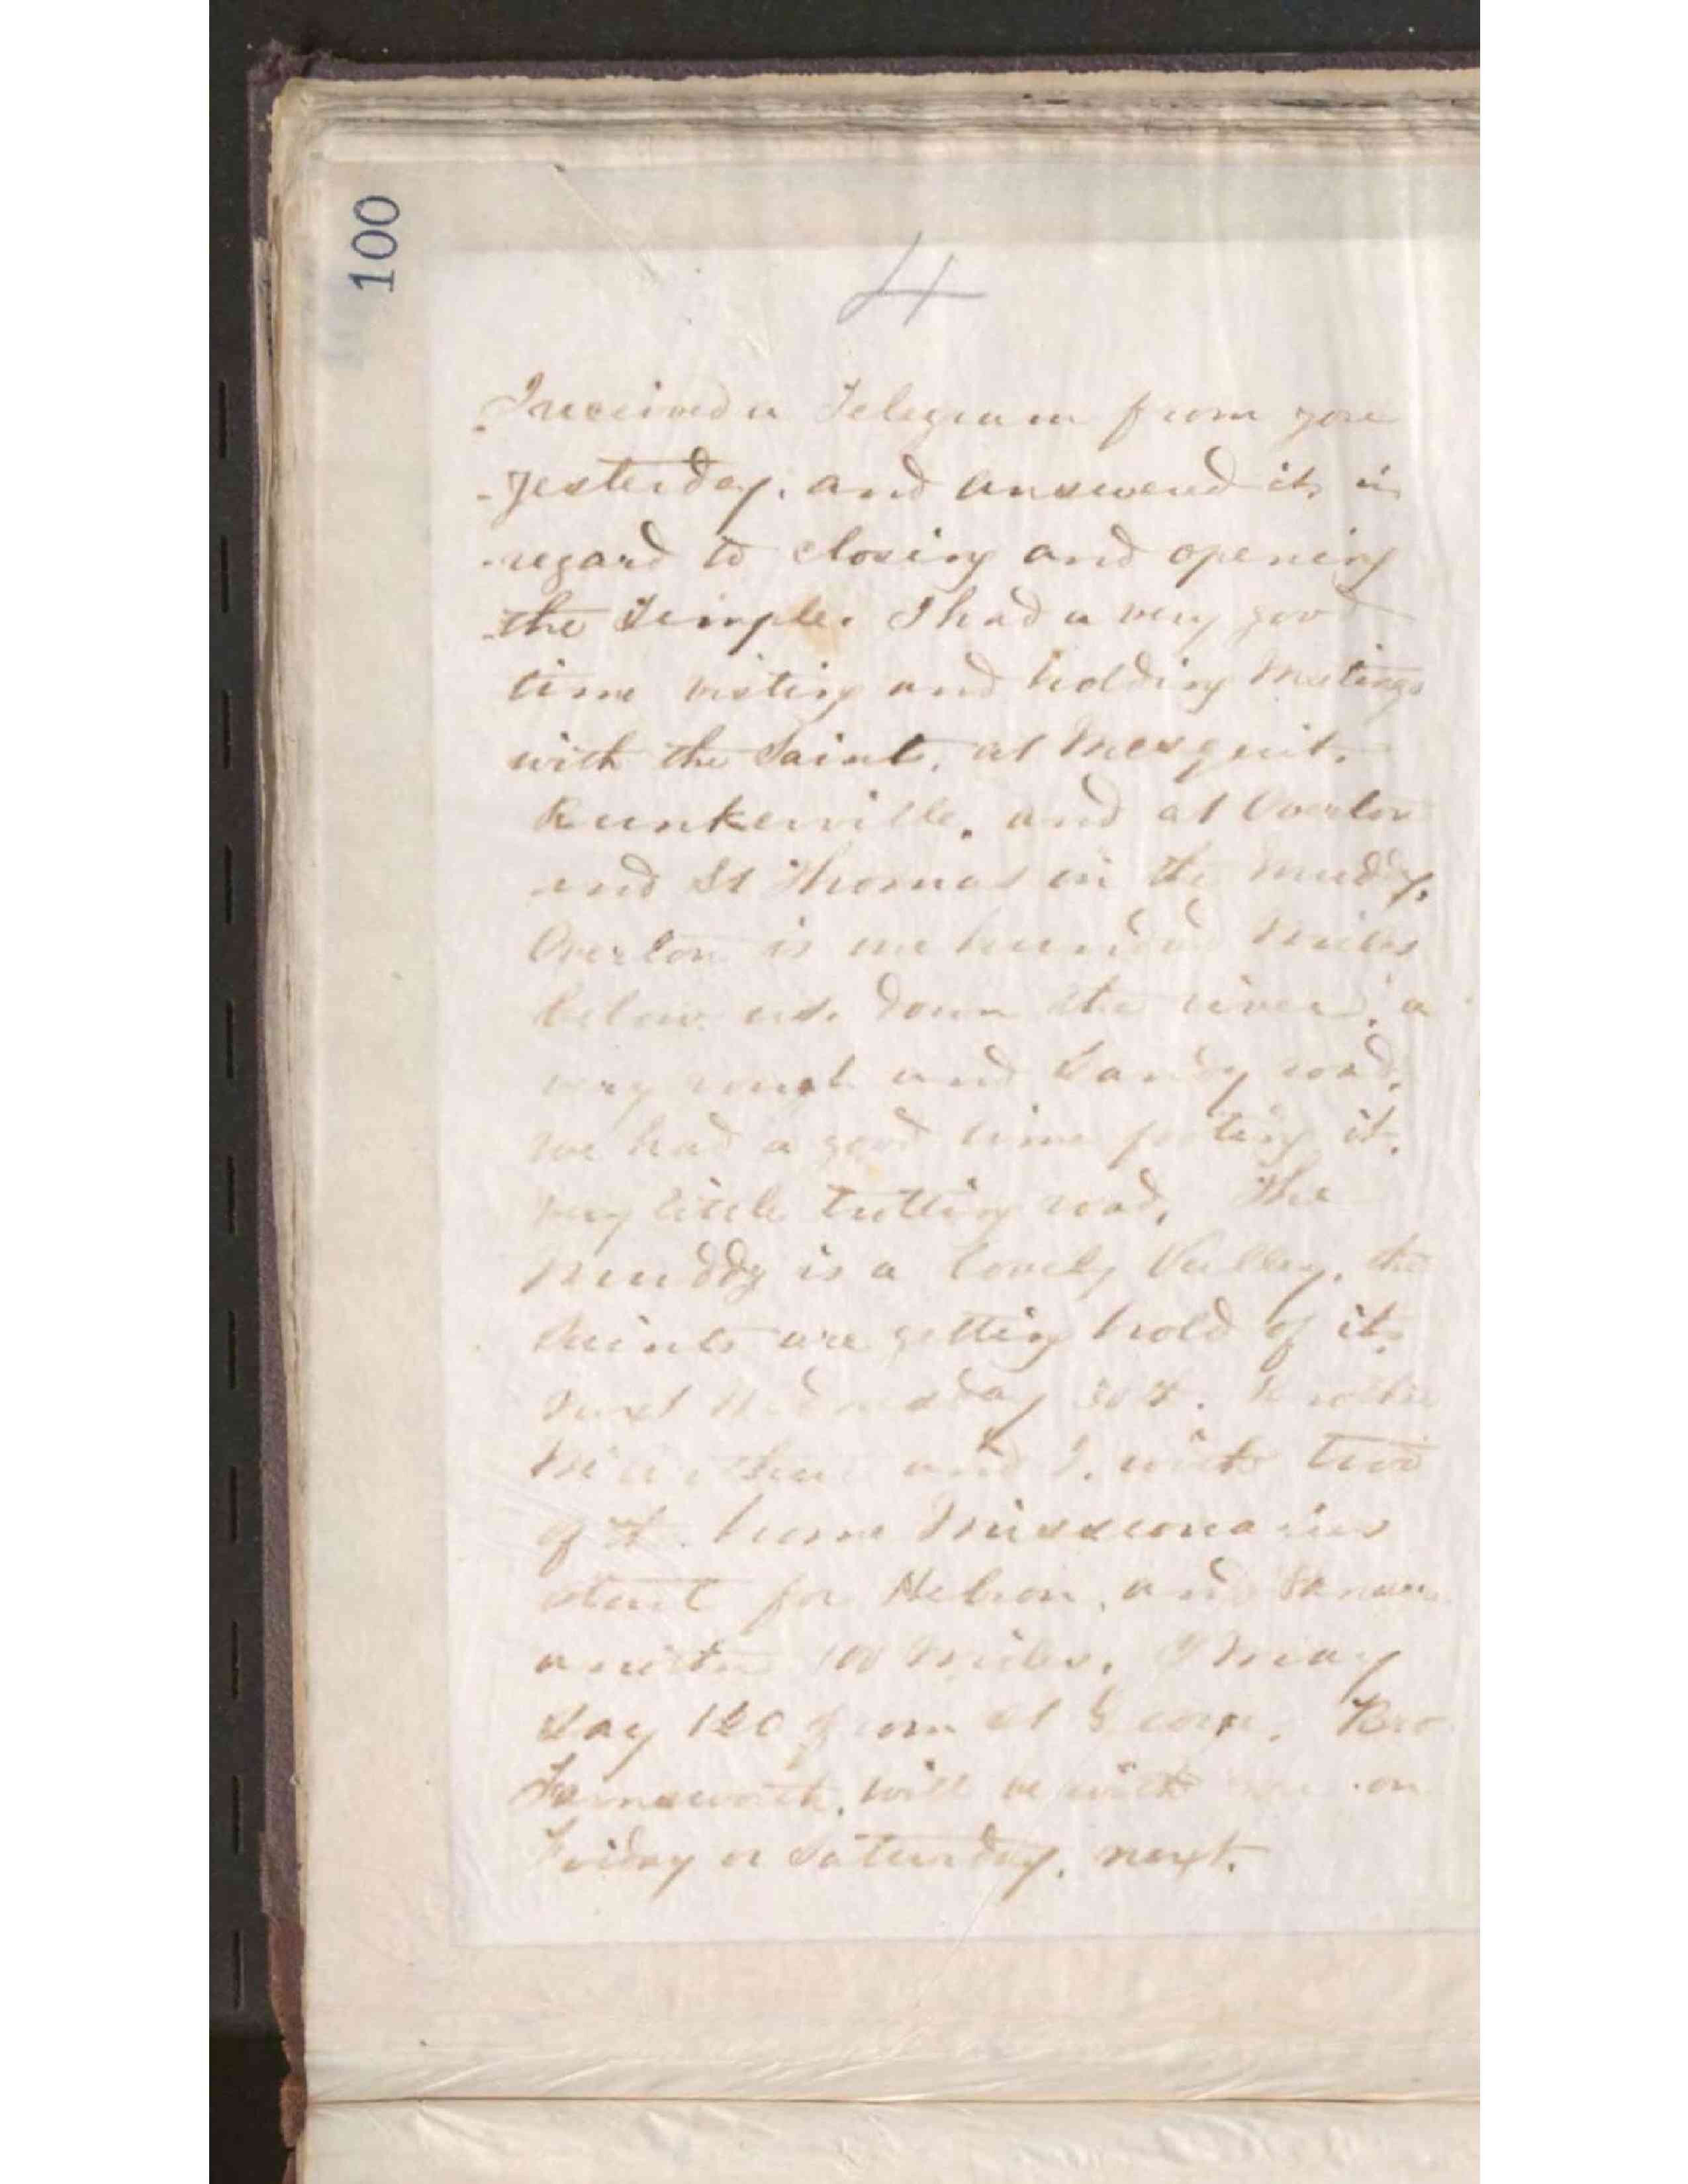 100
4
I received a Telegram from you
yesterday. and answered it, in
regard to closing and opening
the Temple. I had a very good
time visting and holding Meetings
with the Saints, at Mesquit.
Bunkerville, and at Overton
and St Thomas on the Muddy.
Overton is one hundred Miles
below us. down the river, a
very rough and Sandy road.
we had a good time footing it.
very little trotting road. The
Muddy is a lovely Valley, the
Saints are getting hold of it.
next Wednesday 30th. Brother
McArthur and I. with two
of the home Missionaries
start for Hebron, and Panacca
another 100 Miles. I may
say 120 from St George. Bro
Farnsworth, will be with you on
Friday or Saturday, next.